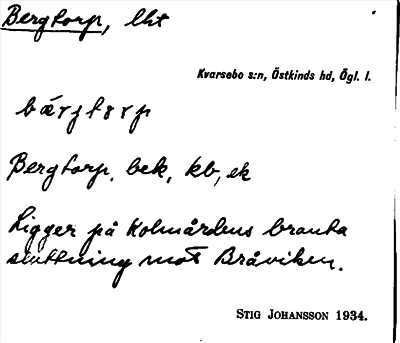 Bergtorp, lht
Kvarsebo s:n, Östkinds hd, Ögl. l.
bärjtorp
Bergtorp, bek, kb, ek
Ligger på Kolmårdens branta
sluttning mot Bråviken.
STIG JOHANSSON 1934.